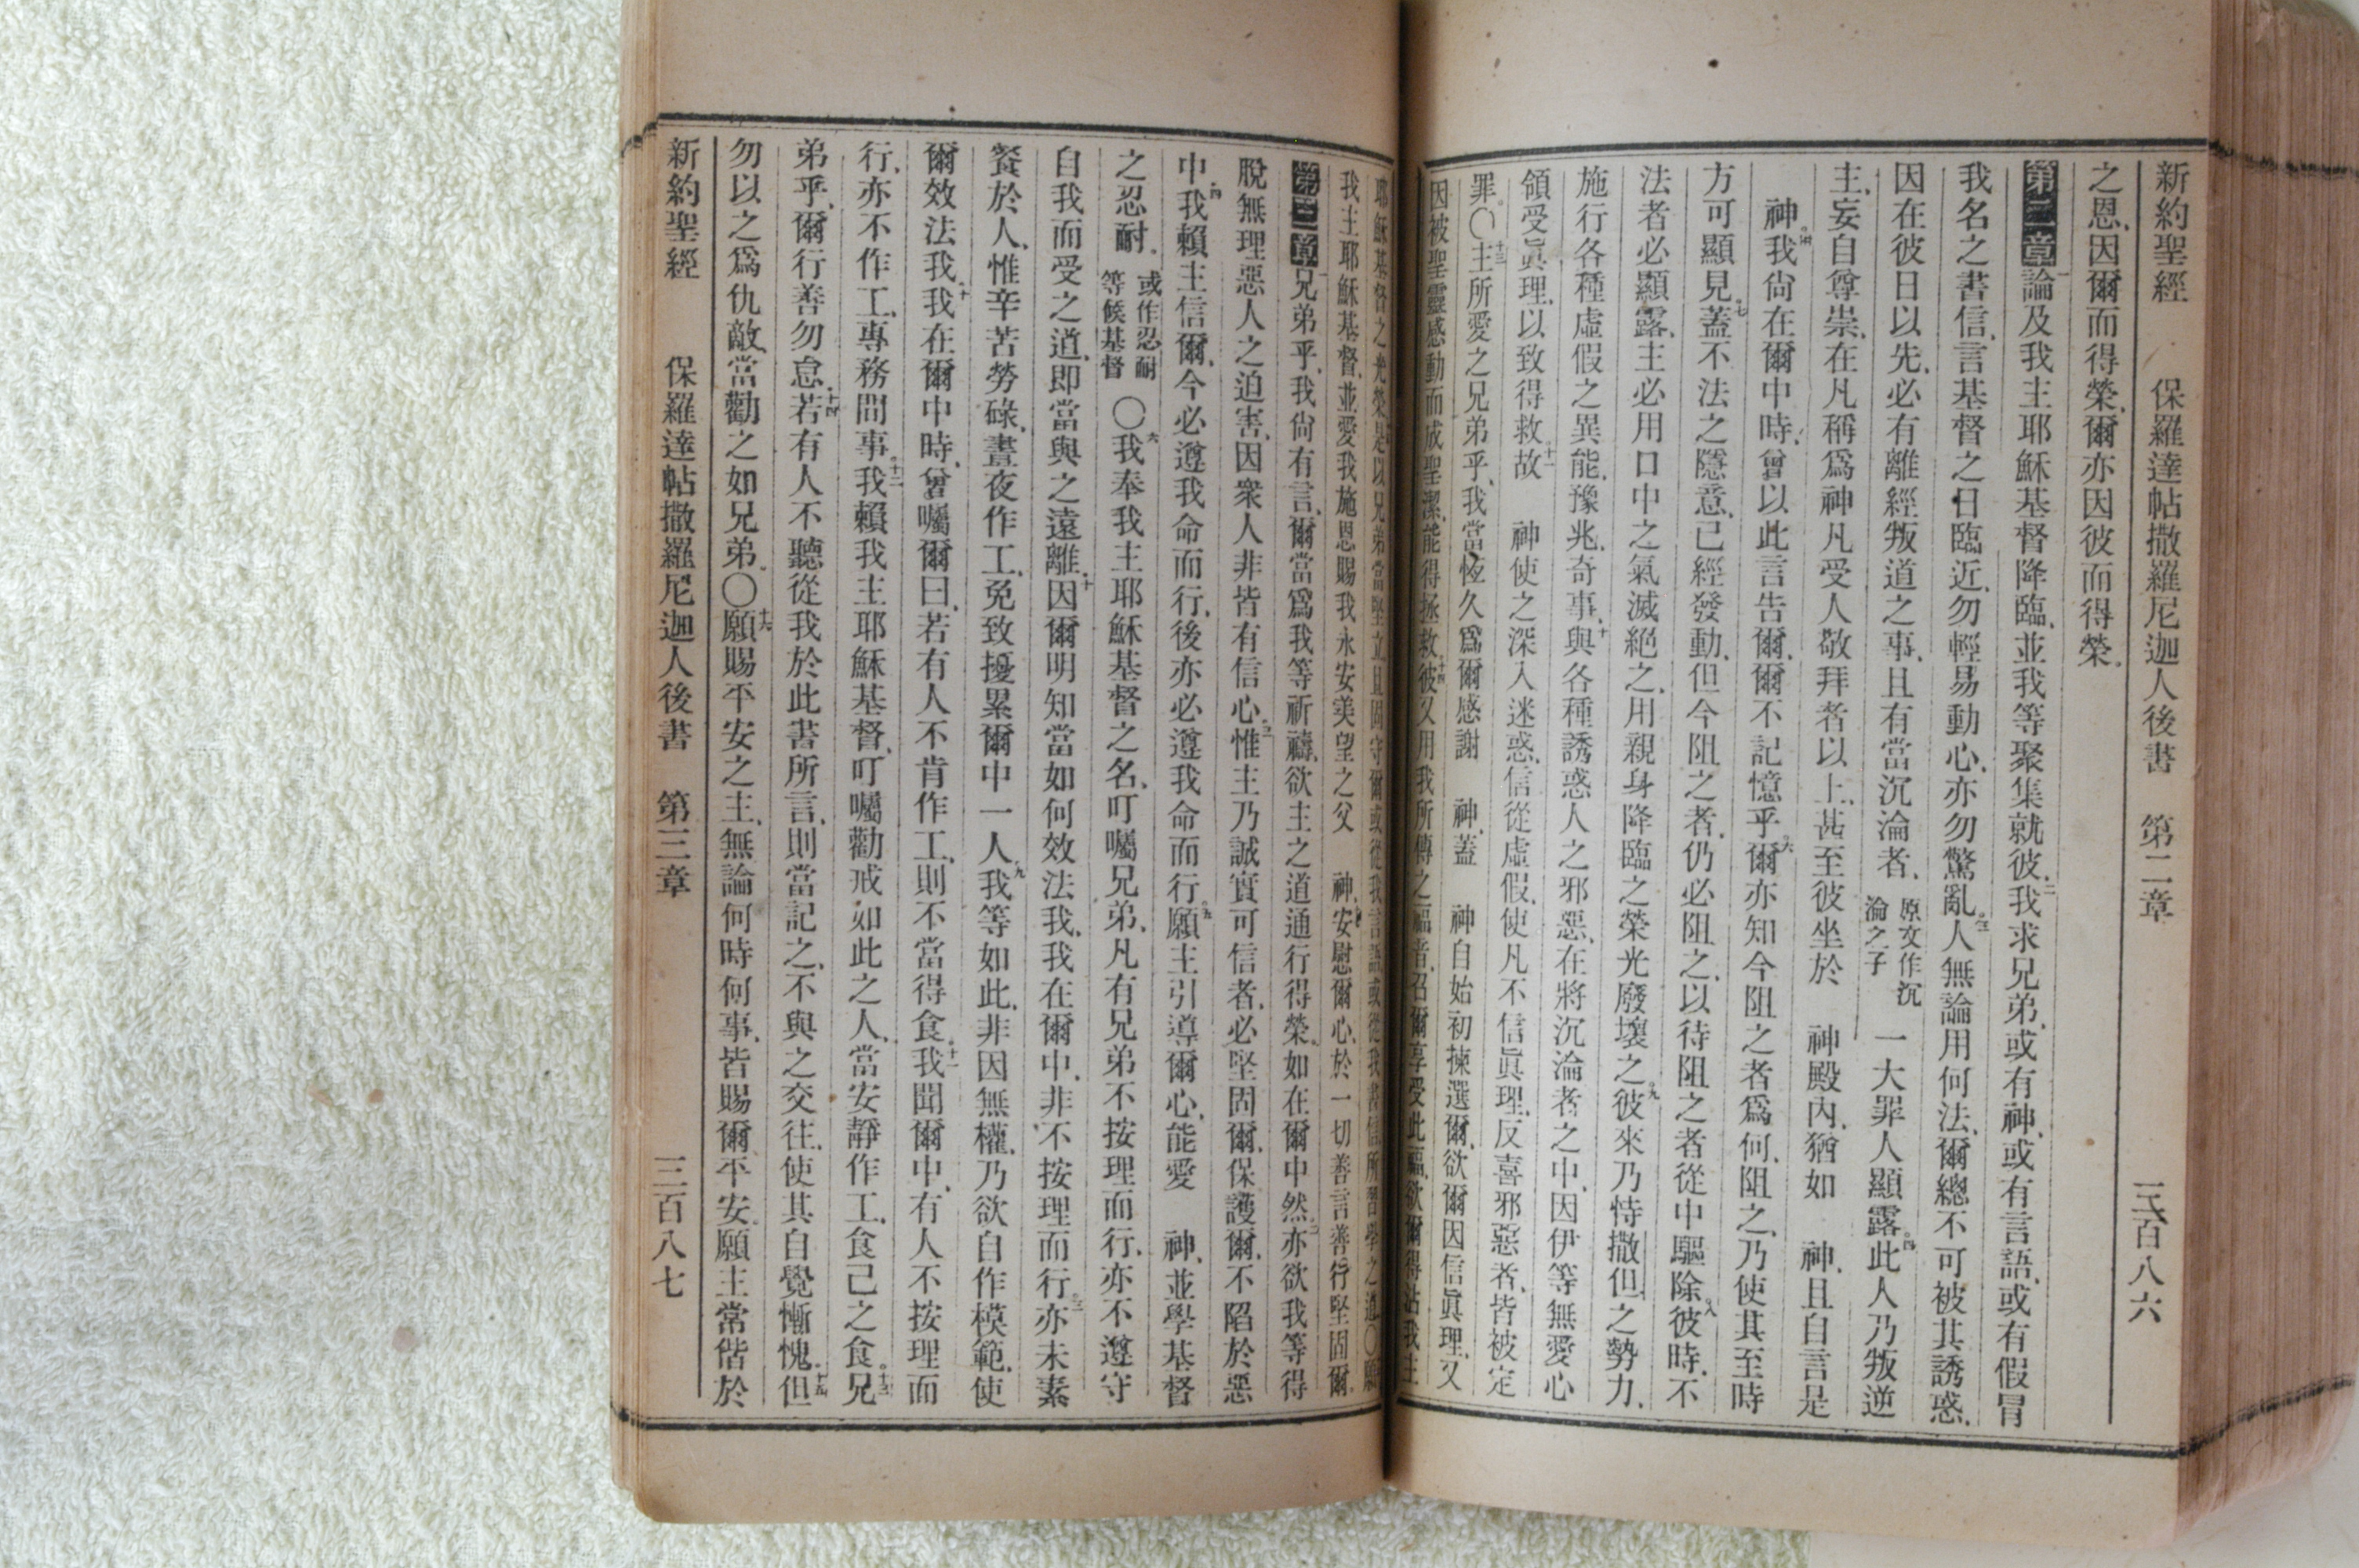 新約聖經 保羅達帖撒羅尼迦人後書 第二章 三百八六
之恩、因爾而得榮、爾亦因彼而得榮。
第二章 一論及我主耶穌基督降臨、並我等聚集就彼、二我求兄弟、或有神、或有言語、或有假冒
我名之書信、言基督之日臨近、勿輕易動心、亦勿驚亂。三人無論用何法、爾總不可被其誘惑、
因在彼日以先、必有離經叛道之事、且有當沉淪者、原文作沉淪之子 一大罪人顯露。四此人乃叛逆
主、妄自尊崇、在凡稱爲神凡受人敬拜者以上、甚至彼坐於 神殿內、猶如 神、且自言是
神。五我尙在爾中時、曾以此言告爾、爾不記憶乎。六爾亦知今阻之者爲何、阻之、乃使其至時
方可顯見。七蓋不法之隱意、已經發動、但今阻之者、仍必阻之、以待阻之者從中驅除。八彼時、不
法者必顯露、主必用口中之氣滅絕之、用親身降臨之榮光廢壞之。九彼來乃恃撒但之勢力、
施行各種虛假之異能、豫兆、奇事、十與各種誘惑人之邪惡、在將沉淪者之中、因伊等無愛心
領受眞理、以致得救。十一故 神使之深入迷惑、信從虛假、使凡不信眞理、反喜邪惡者、皆被定
罪。〇十三主所愛之兄弟乎、我當恆久爲爾感謝 神、蓋 神自始初揀選爾、欲爾因信眞理、又
因被聖靈感動而成聖潔、能得拯救、十四彼又用我所傳之福音、召爾享受此福、欲爾得沾我主
耶穌基督之光榮。是以兄弟當堅立、且固守爾或從我言語或從我書信所習學之道。〇願
我主耶穌基督、並愛我施恩賜我永安美望之父 神、安慰爾心、於一切善言善行堅固爾。
第三章 一兄弟乎、我尙有言、爾當爲我等祈禱、欲主之道通行得榮。如在爾中然。二亦欲我等得
脫無理惡人之迫害、因衆人非皆有信心。三惟主乃誠實可信者、必堅固爾、保護爾、不陷於惡
中。四我賴主信爾、今必遵我命而行、後亦必遵我命而行。五願主引導爾心、能愛 神、並學基督
之忍耐。或作忍耐等候基督 〇六我奉我主耶穌基督之名、叮囑兄弟、凡有兄弟不按理而行、亦不遵守
自我而受之道、即當與之遠離。十因爾明知當如何效法我、我在爾中、非不按理而行。亦未素
餐於人、惟辛苦勞碌、晝夜作工、免致擾累爾中一人。九我等如此、非因無權、乃欲自作模範、使
爾效法我。十我在爾中時、曾囑爾曰、若有人不肯作工、則不當得食。十一我聞爾中、有人不按理而
行、亦不作工、專務閒事。十二我賴我主耶穌基督、叮囑勸戒如此之人、當安靜作工、食己之食。十三兄
弟乎、爾行善勿怠。十四若有人不聽從我於此書所言、則當記之、不與之交往、使其自覺慚愧。十五但
勿以之爲仇敵、當勸之如兄弟。〇十六願賜平安之主、無論何時何事、皆賜爾平安。願主常偕於
新約聖經 保羅達帖撒羅尼迦人後書 第三章 三百八七